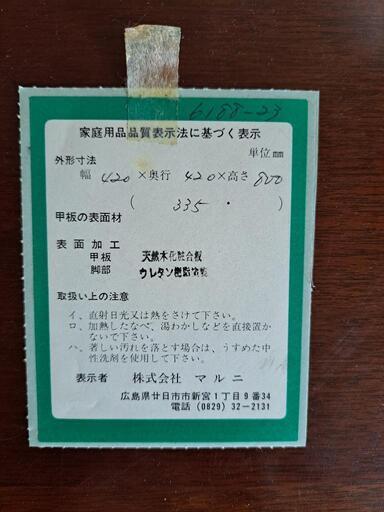 6188-23
家庭用品品質表示法に基づく表示
外形寸法
単位㎜
幅 420 ×奥行 420 ×高さ 800
( 335 ・ )
甲板の表面材
表面加工
甲板 天然木化粧合板
脚部 ウレタン樹脂塗装
取扱い上の注意
イ、直射日光又は熱をさけて下さい。
ロ、加熱したなべ、湯わかしなどを直接置かないで下さい。
ハ、著しい汚れを落とす場合は、うすめた中性洗剤を使用して下さい。
表示者 株式会社 マルニ
広島県廿日市市新宮1丁目9番34
電話 (0829) 32-2131